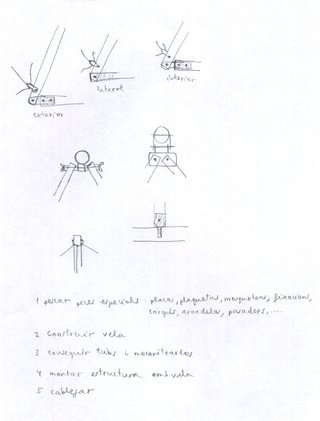 lateral
interior
exterior
1 pescar peces especials: placa, plaquetas, mosquetons, fixacions,
cargols, arandelas, pasadors, ....
2 construir vela
3 conseguir tubs i mecanitzarlos
4 montar estructura amb vela
5 cablejar